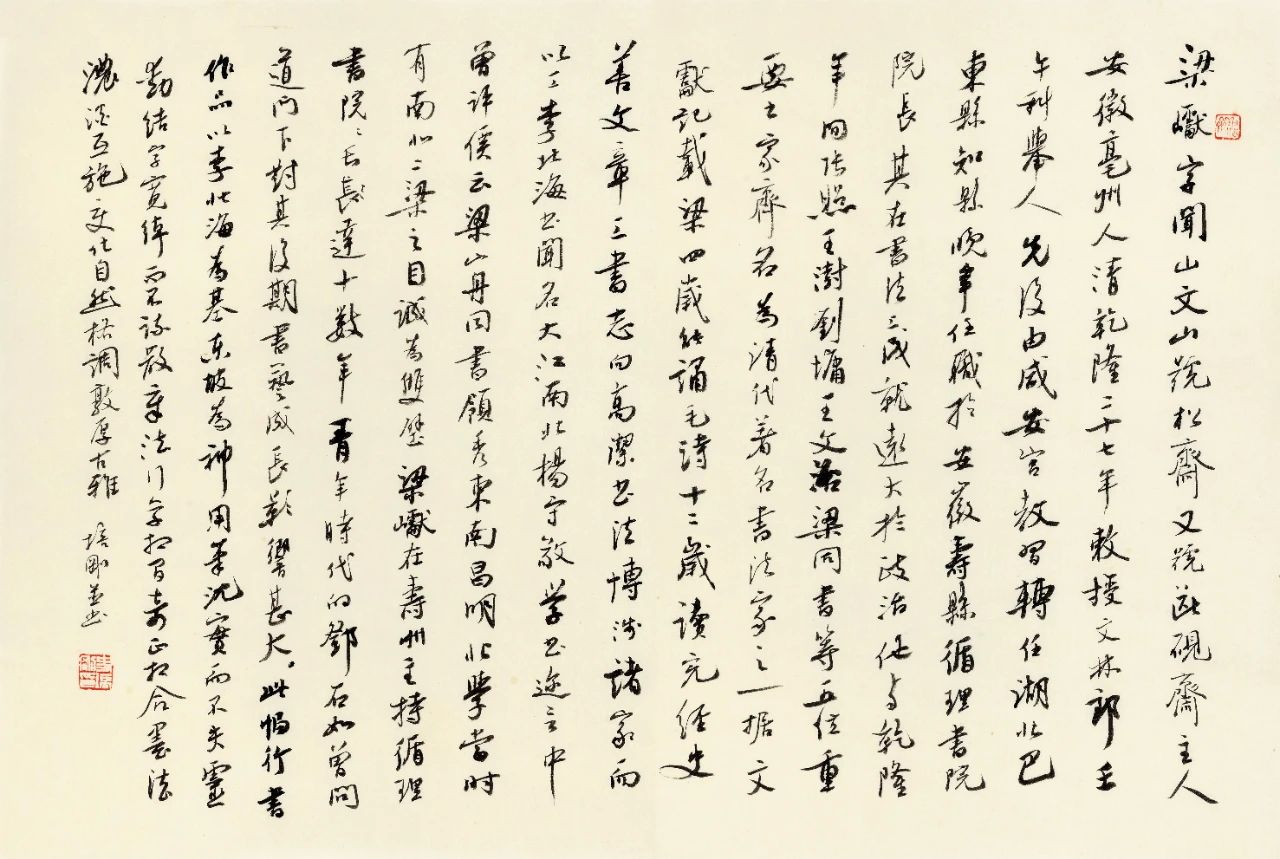 梁巘字聞山文山號松齋又號斷硯齋主人
安徽亳州人清乾隆二十七年敕授文林郎壬
午科舉人先後由咸安宮教習轉任湖北巴
東縣知縣晚年任職於安徽壽縣循理書院
院長其在書法之成就遠大於政治他與乾隆
年間張照王澍劉墉王文治梁同書等五位重
要書家齊名為清代著名書法家之一據文
獻記載梁四歲能誦毛詩十二歲讀完經史
善文章工書志向高潔書法博涉諸家而
以工李北海書聞名大江南北楊守敬學書邇言中
曾評價云梁山舟同書領秀東南昌明北學當時
有南北二梁之目誠為雙壁梁巘在壽州主持循理
書院院長長達十數年青年時代的鄧石如曾問
道門下對其後期書藝成長影響甚大此幅行書
作品以李北海為基東坡為神用筆沉實而不失靈
動結字寬綽而不鬆散章法行字相間奇正相合墨法
濃淡互施變化自然格調敦厚古雅 培剛並書